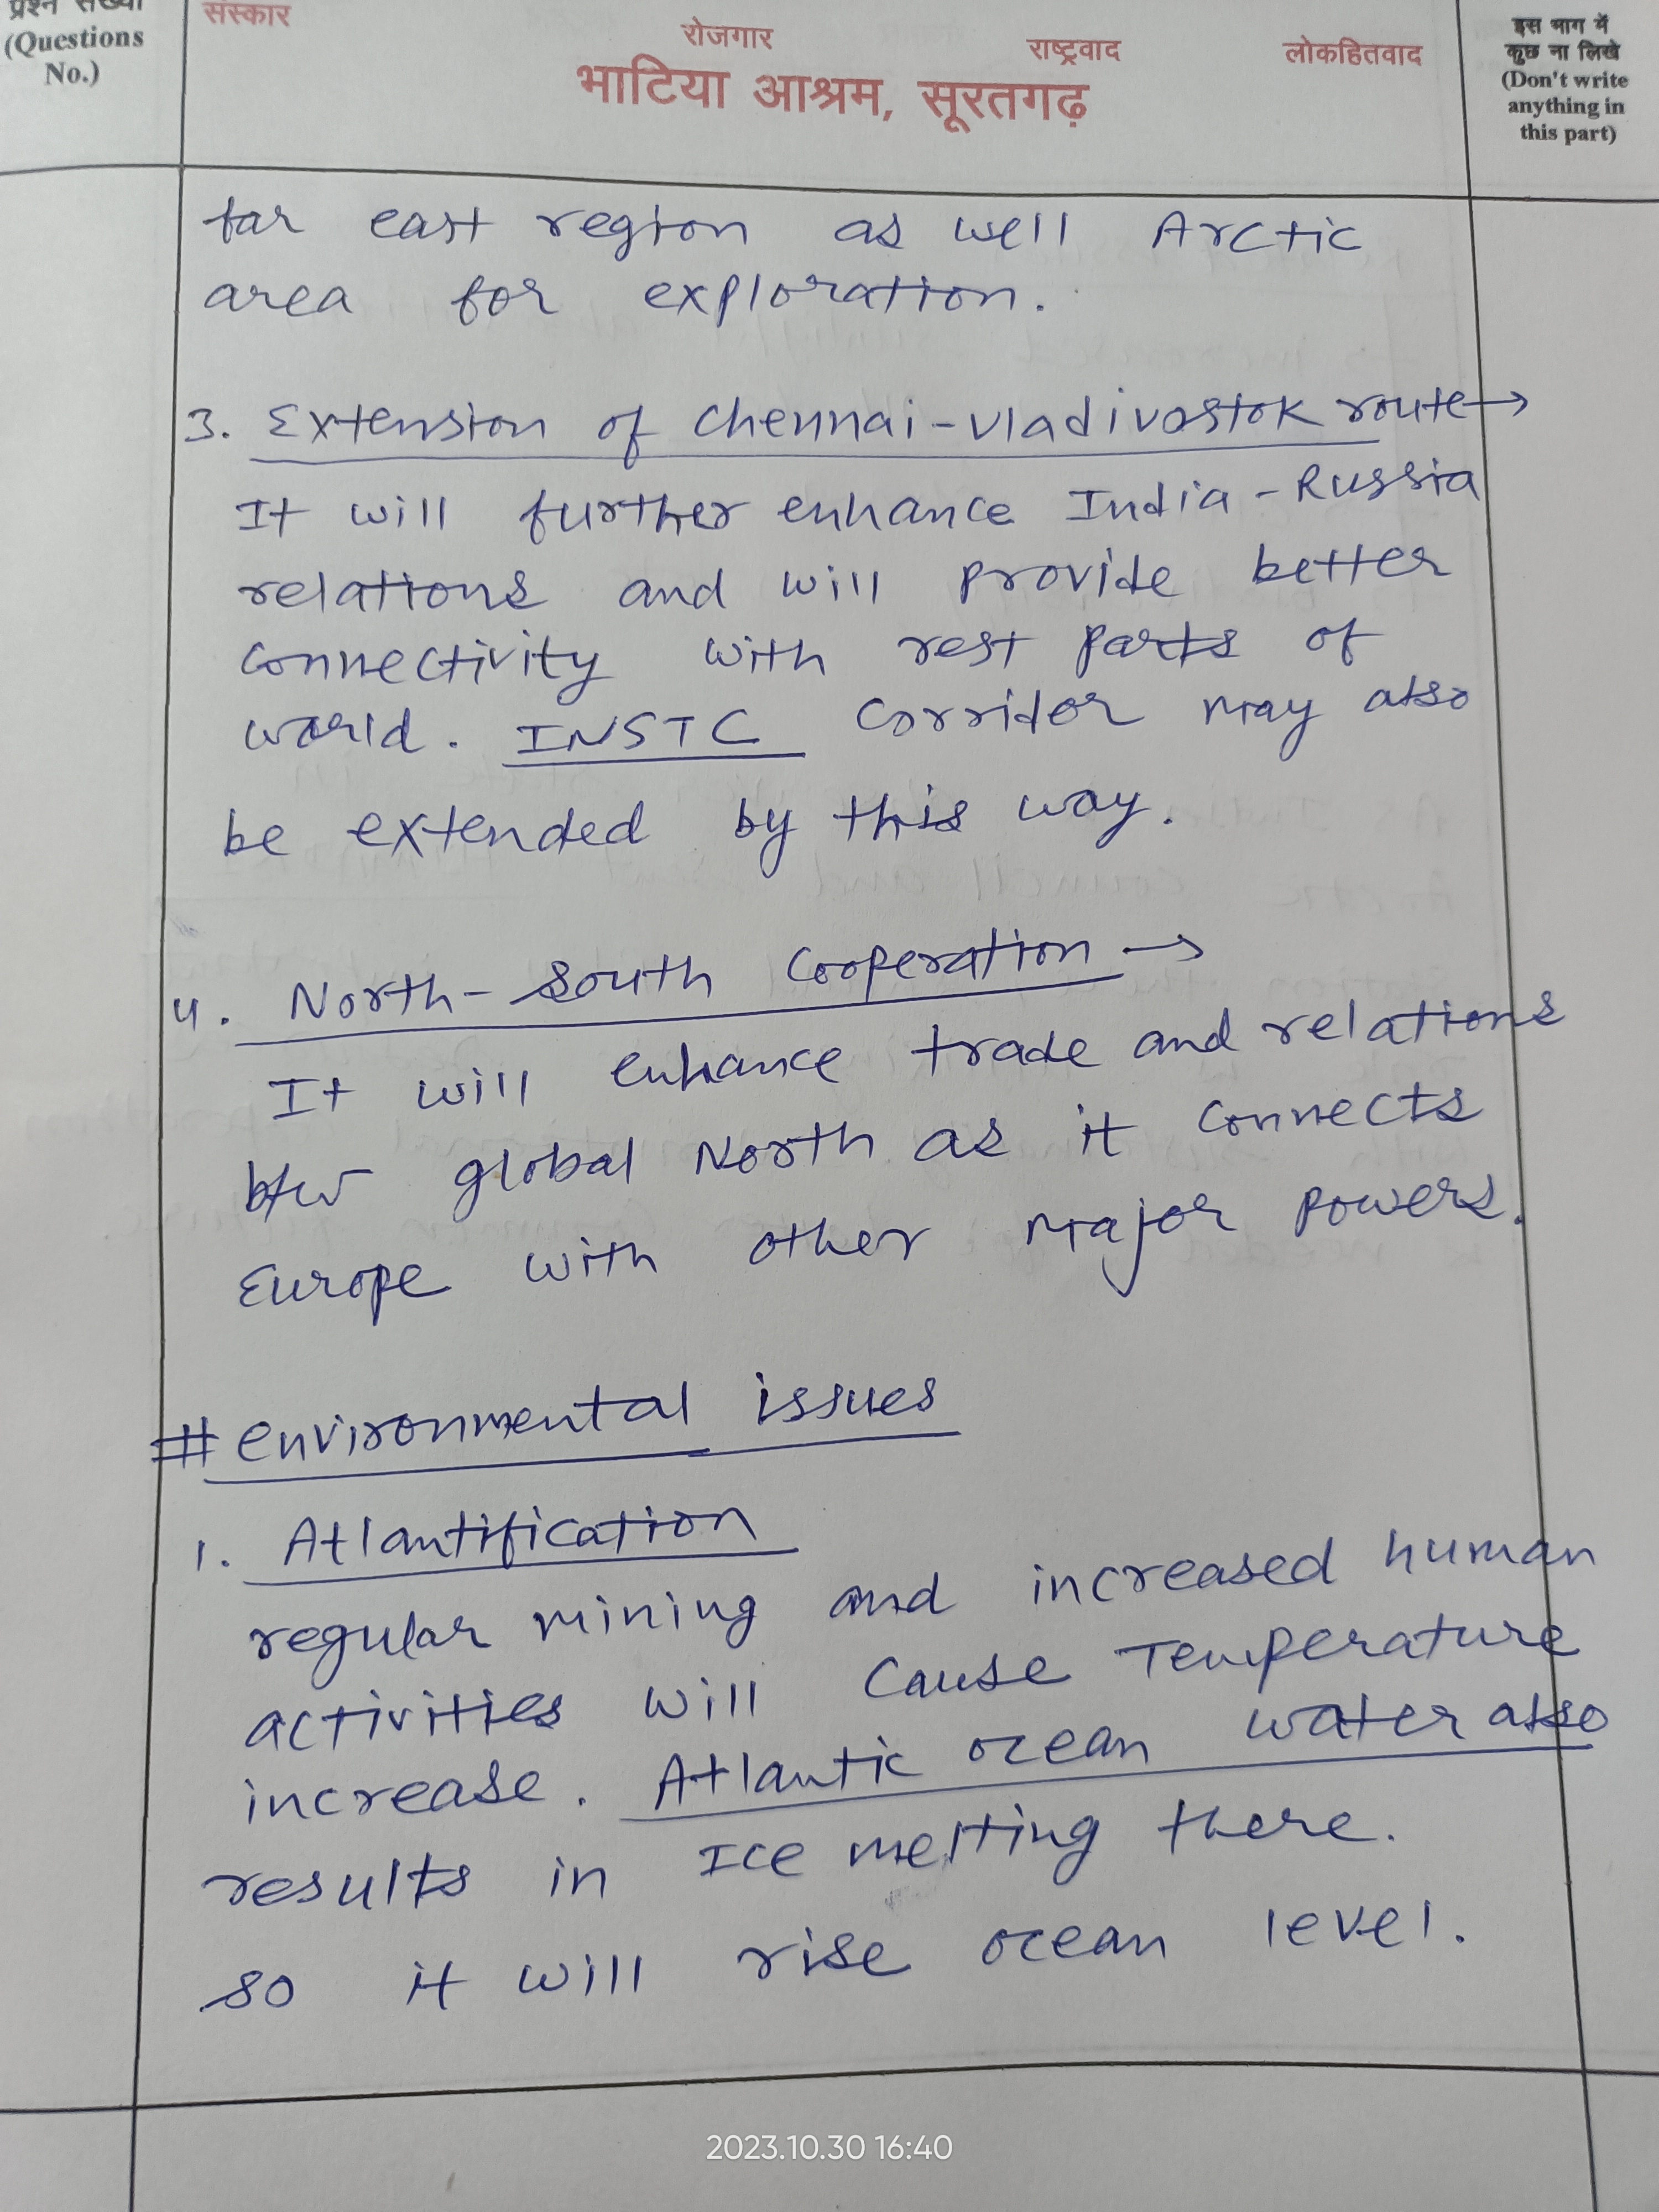 प्रश्न संख्या
(Questions
No.)
संस्कार
रोजगार
राष्ट्रवाद
लोकहितवाद
भाटिया आश्रम, सूरतगढ़
इस भाग में
कुछ ना लिखे
(Don't write
anything in
this part)
far east region as well Arctic
area for exploration.
3. Extension of Chennai-vladivostok route→
It will further enhance India-Russia
relations and will provide better
connectivity with rest parts of
world. INSTC corridor may also
be extended by this way.
4. North-South Cooperation →
It will enhance trade and relations
btw global North as it connects
Europe with other major powers.
# environmental issues
1. Atlantification
regular mining and increased human
activities will cause Temperature
increase. Atlantic ocean water also
results in Ice melting there.
so it will rise ocean level.
2023.10.30 16:40